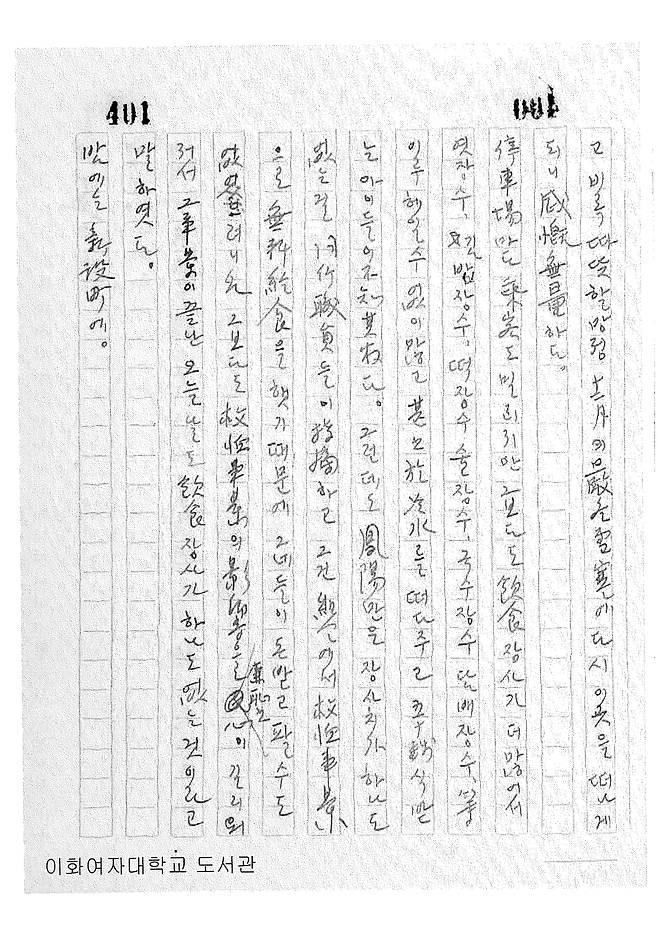 401
001
고 비록 따뜻할망정 十一月의 嚴冬雪寒에 다시 이곳을 떠나게
되니 感慨無量하다。
停車場마다 乘客도 밀리지만 그보다도 飮食장사가 더 많어서
엿장수、김밥장수、떡장수 술장수、국수장수 담배장수、
이루 헤일 수 없이 많고 甚至於 冷水를 떠다주고 五十錢식 받
는 아이들이 不知其数다。 그런데도 鳳陽만은 장사치가 하나도
없는걸 同行職員들이 指摘하고 그건 縣에서 救恤事業
으로 無料給食을 햇기 때문에 그네들이 돈 받고 팔 수도
없엇 려니와 그보다도 救恤事業의 影響을 이 길러워
저서 그 事業이 끝난 오늘날도 飮食장사가 하나도 없는 것이라고
말하엿다。
밤에는 新設町에。
이화여자대학교 도서관